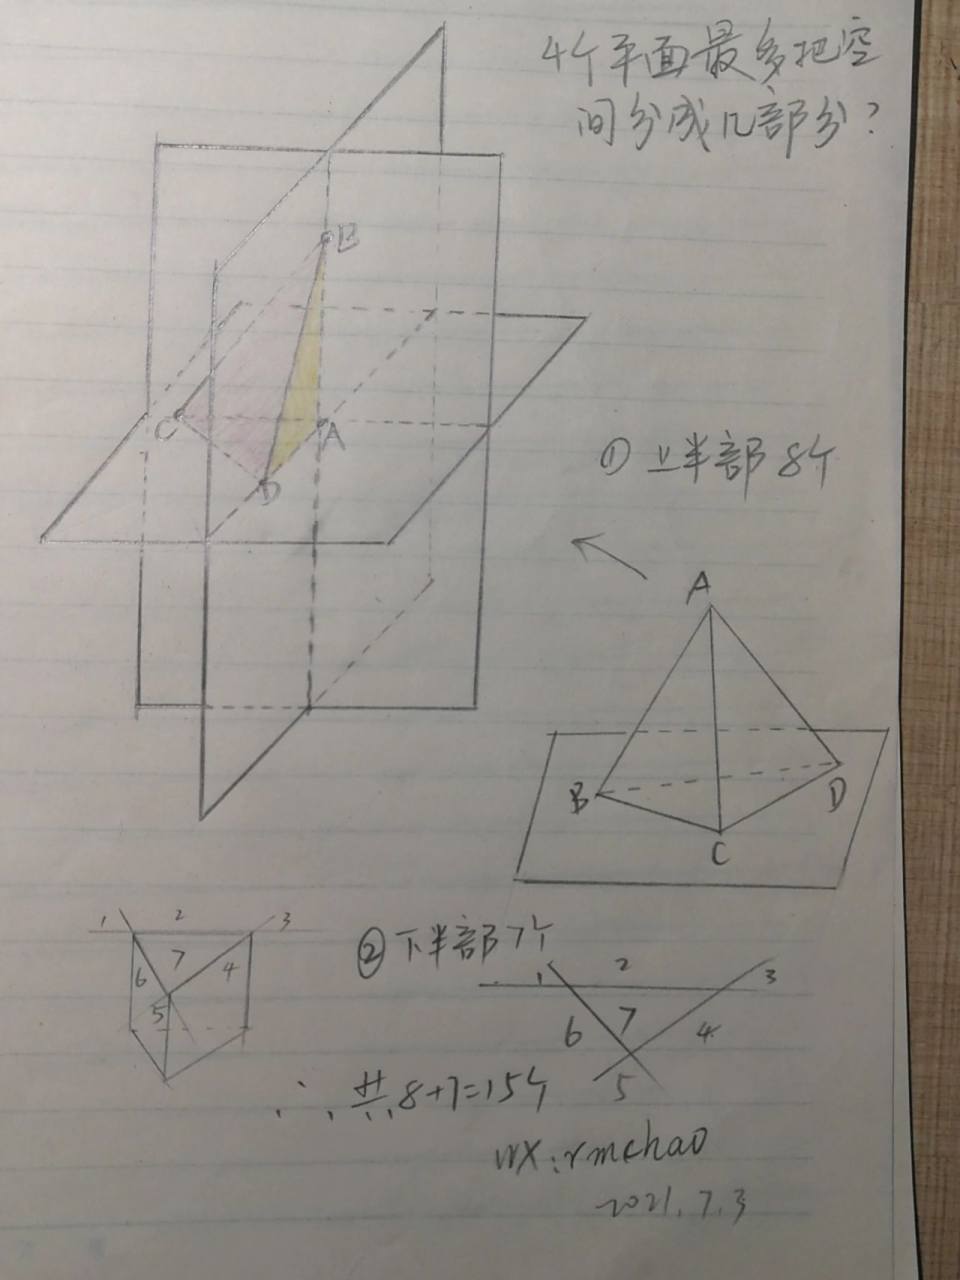 4个平面最多把空
间分成几部分?
B
C
A
D
① 上半部 8个
A
B
D
C
1
2
3
6
7
4
5
② 下半部 7个
1
2
3
6
7
4
5
∴ 共 8+7=15个
WX:rmchao
2021.7.3